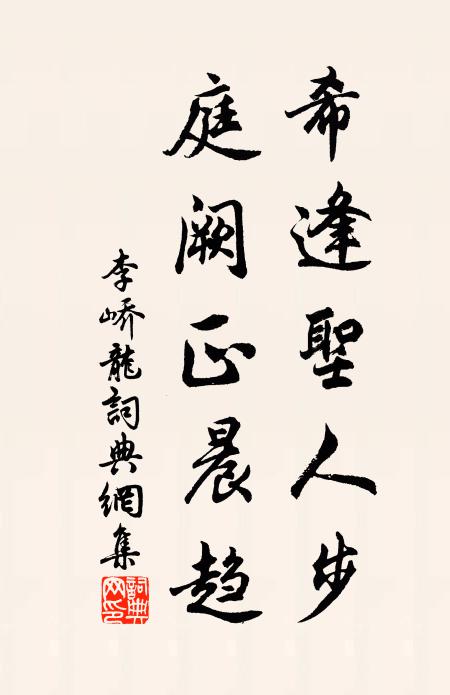 希逢聖人步
庭闕正晨趨
李嶠龍詞典網集
詞典网印